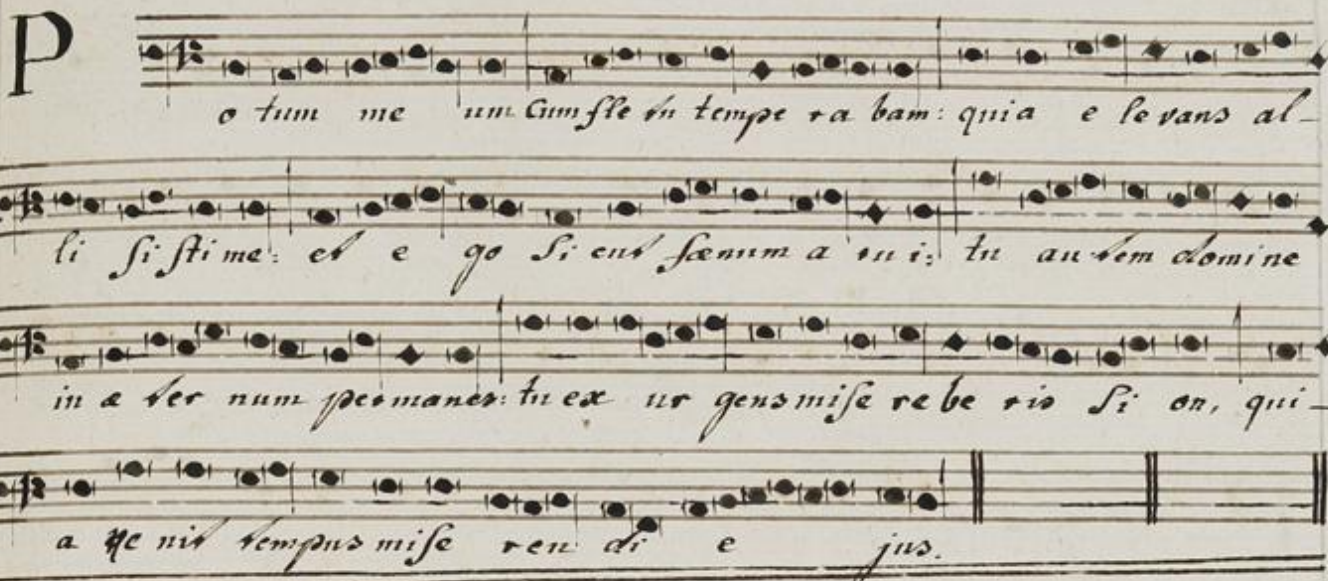 P
o tum me um Cum fle tu tempe ra bam: quia e le vans al-
li si sti me: et e go Si cut fænum a rui: tu au tem domine
in æ ter num permanes: tu ex ur gens mise re be ris Si on, qui-
a ve nit tempus mise ren di e jus.